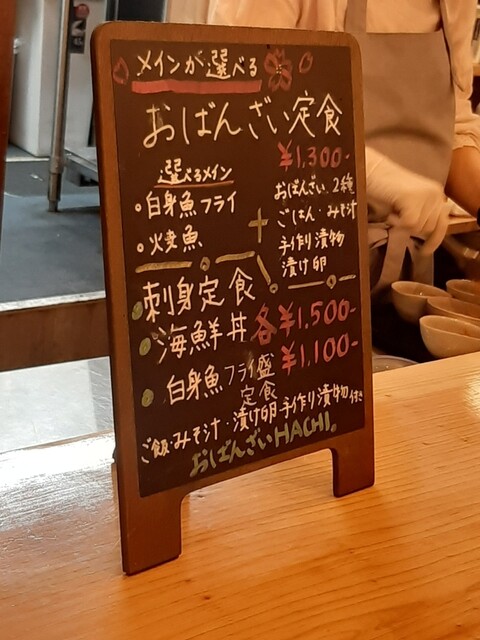 メインが選べる
おばんざい定食
¥1,300-
選べるメイン
・白身魚フライ
・焼魚
+
おばんざい2種
ごはん・みそ汁
手作り漬物
漬け卵
・刺身定食
・海鮮丼 各¥1,500-
・白身魚フライ盛定食 ¥1,100-
ご飯・みそ汁・漬け卵・手作り漬物付き
おばんざいHACHI。